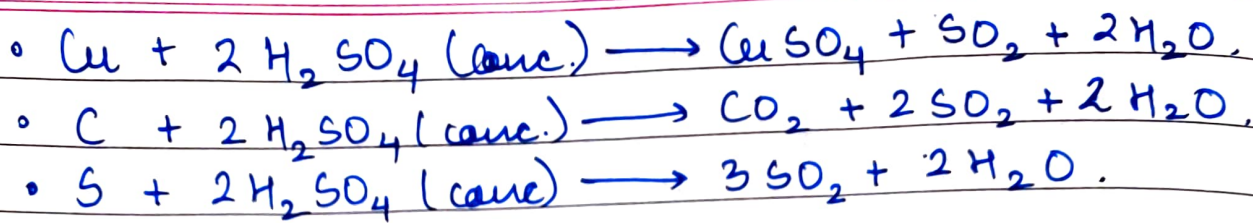 • Cu + 2 H₂SO₄ (conc.) ⟶ CuSO₄ + SO₂ + 2H₂O.
• C + 2 H₂SO₄ (conc.) ⟶ CO₂ + 2 SO₂ + 2 H₂O.
• S + 2H₂SO₄ (conc) ⟶ 3 SO₂ + 2 H₂O.